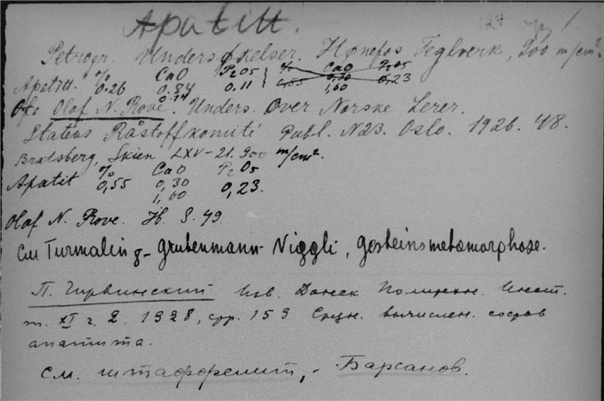 Apatitt.
Petrogr. Undersøkelser. Hønefos Teglverk, 900 m/cm².
Apatitt. % 0.26 CaO 0.84 0.14 P2O5 0.11 % 0.55 CaO 0,30 1,00 P2O5 0,23
Olaf N. Rove. Unders. Over Norske Lerer.
Statens Råstoffkomité Publ. N23. Oslo. 1926. 48.
Bratsberg, Skien LXV-21. 900 m/cm².
Apatit % 0,55 CaO 0,30 1,00 P2O5 0,23.
Olaf N. Rove. Ib. S. 49.
См Turmalin g- Grubenmann-Niggli, gesteinsmetamorphose.
П. Чирвинский Изв. Донск Политехн. Инст.
т. XI г. 2. 1928, стр. 153 Средн. вычислен. состав
апатита.
См. штаффелит, - Барсанов.